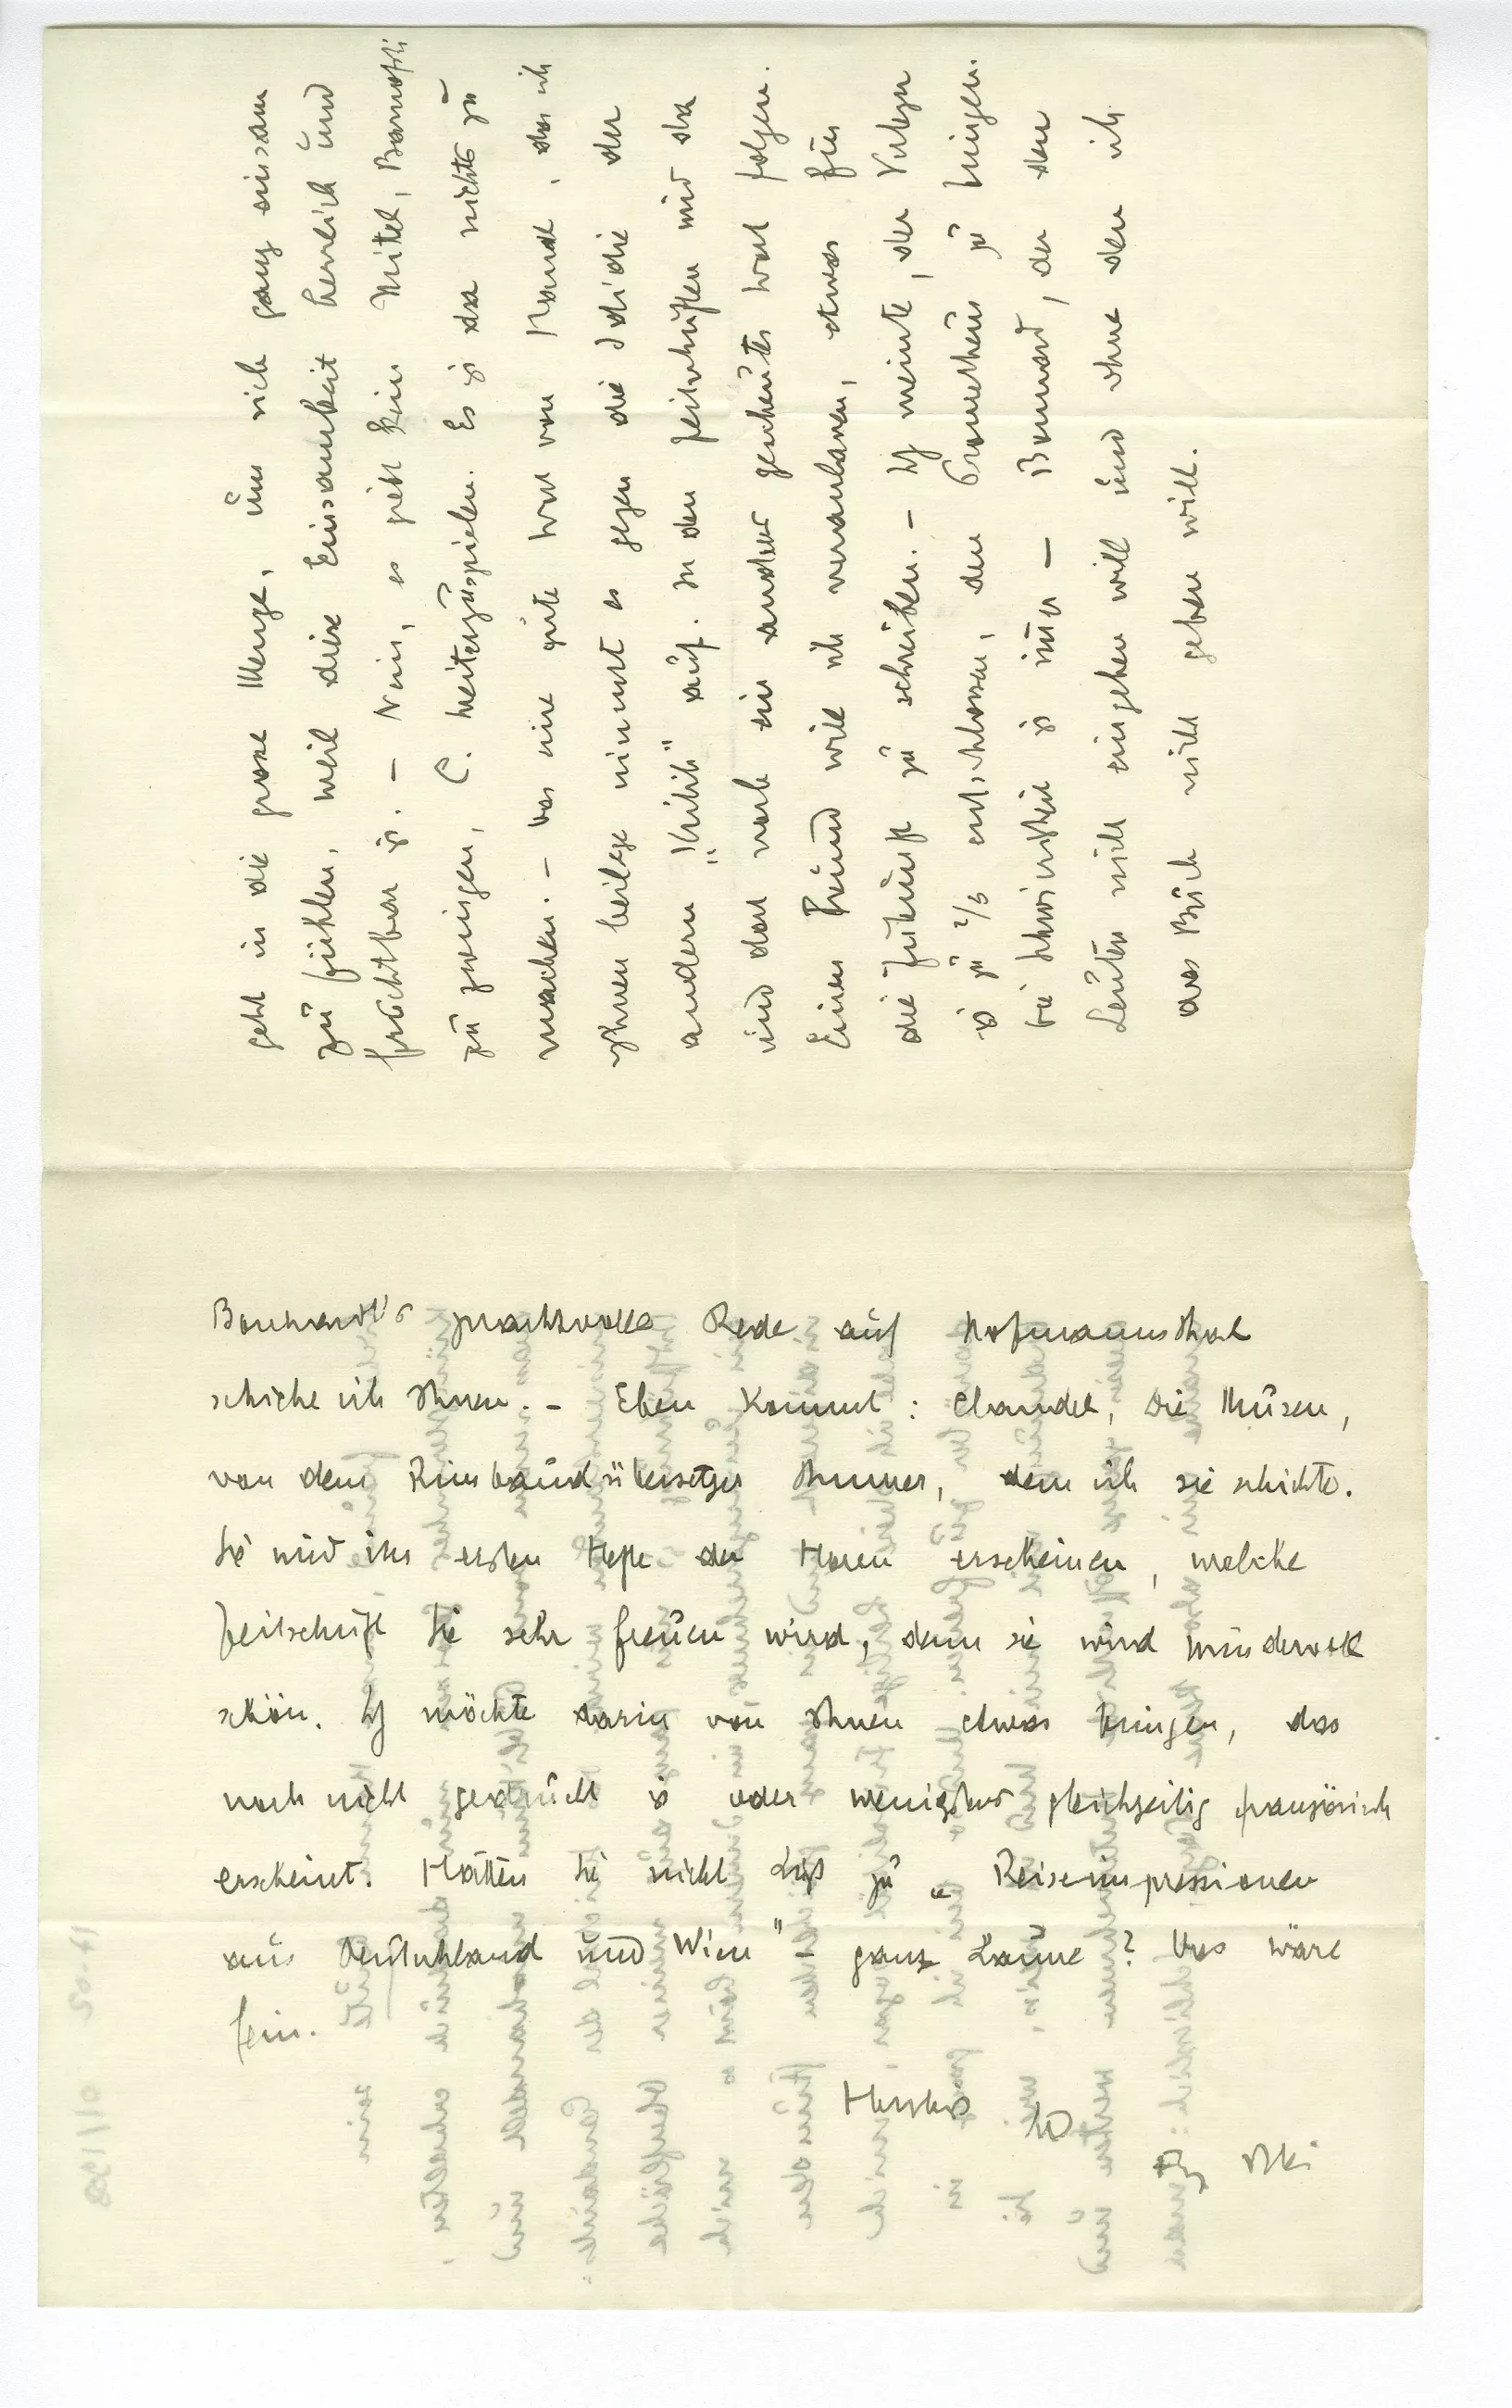 geht in die grosse Menge, um sich ganz einsam
zu fühlen, weil diese Einsamkeit herrlich und
fruchtbar ist. – Nein, es giebt kein Mittel,
zu zwingen, C. weiterzuspielen. Es ist da nichts zu
machen. – das eine gute Wort von , das ich
Ihnen beilege nimmt es gegen die Idiotie der
andern „Kritik" auf. In den Zeitschriften wird da
und dort noch ein andres gescheutes Wort folgen.
Einen Freund will ich veranlassen, etwas für
die Zukunft zu schreiben. – Ich meinte, der Verleger
ist zu 2/3 entschlossen, den Prometheus zu bringen.
Die Schwierigkeit ist nur – , der den
Leuten nicht eingehen will und ohne den ich
das Buch nicht geben will.
Borchardt's prachtvolle Rede auf Hofmannsthal
schicke ich Ihnen. – Eben kommt: Claudel, Die Musen,
von dem Rimbaudübersetzer Ammer, dem ich sie schickte.
Sie wird im ersten Hefte der Horen erscheinen, welche
Zeitschrift Sie sehr freuen wird, denn sie wird wundervoll
schön. Ich möchte darin von Ihnen etwas bringen, das
noch nicht gedruckt ist oder wenigstens gleichzeitig französisch
erscheint. Hätten Sie nicht Lust zu „Reiseimpressionen
aus Deutschland und Wien" – ganz Laune? Das wäre
fein.
Herzlichst
Ihr